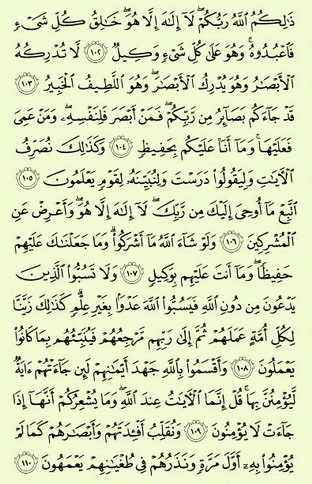 ذَٰلِكُمُ ٱللَّهُ رَبُّكُمْ ۖ لَآ إِلَٰهَ إِلَّا هُوَ ۖ خَٰلِقُ كُلِّ شَىْءٍ
فَٱعْبُدُوهُ ۚ وَهُوَ عَلَىٰ كُلِّ شَىْءٍ وَكِيلٌ ١٠٢ لَّا تُدْرِكُهُ
ٱلْأَبْصَٰرُ وَهُوَ يُدْرِكُ ٱلْأَبْصَٰرَ ۖ وَهُوَ ٱللَّطِيفُ ٱلْخَبِيرُ ١٠٣
قَدْ جَآءَكُم بَصَآئِرُ مِن رَّبِّكُمْ ۖ فَمَنْ أَبْصَرَ فَلِنَفْسِهِۦ ۖ وَمَنْ عَمِىَ
فَعَلَيْهَا ۚ وَمَآ أَنَا۠ عَلَيْكُم بِحَفِيظٍ ١٠٤ وَكَذَٰلِكَ نُصَرِّفُ
ٱلْءَايَٰتِ وَلِيَقُولُوا۟ دَرَسْتَ وَلِنُبَيِّنَهُۥ لِقَوْمٍ يَعْلَمُونَ ١٠٥
ٱتَّبِعْ مَآ أُوحِىَ إِلَيْكَ مِن رَّبِّكَ ۖ لَآ إِلَٰهَ إِلَّا هُوَ ۖ وَأَعْرِضْ عَنِ
ٱلْمُشْرِكِينَ ١٠٦ وَلَوْ شَآءَ ٱللَّهُ مَآ أَشْرَكُوا۟ ۗ وَمَا جَعَلْنَٰكَ عَلَيْهِمْ
حَفِيظًا ۖ وَمَآ أَنتَ عَلَيْهِم بِوَكِيلٍ ١٠٧ وَلَا تَسُبُّوا۟ ٱلَّذِينَ
يَدْعُونَ مِن دُونِ ٱللَّهِ فَيَسُبُّوا۟ ٱللَّهَ عَدْوًۢا بِغَيْرِ عِلْمٍ ۗ كَذَٰلِكَ زَيَّنَّا
لِكُلِّ أُمَّةٍ عَمَلَهُمْ ثُمَّ إِلَىٰ رَبِّهِم مَّرْجِعُهُمْ فَيُنَبِّئُهُم بِمَا كَانُوا۟
يَعْمَلُونَ ١٠٨ وَأَقْسَمُوا۟ بِٱللَّهِ جَهْدَ أَيْمَٰنِهِمْ لَئِن جَآءَتْهُمْ ءَايَةٌ
لَّيُؤْمِنُنَّ بِهَا ۚ قُلْ إِنَّمَا ٱلْءَايَٰتُ عِندَ ٱللَّهِ ۖ وَمَا يُشْعِرُكُمْ أَنَّهَآ إِذَا
جَآءَتْ لَا يُؤْمِنُونَ ١٠٩ وَنُقَلِّبُ أَفْـِٔدَتَهُمْ وَأَبْصَٰرَهُمْ كَمَا لَمْ
يُؤْمِنُوا۟ بِهِۦٓ أَوَّلَ مَرَّةٍ وَنَذَرُهُمْ فِى طُغْيَٰنِهِمْ يَعْمَهُونَ ١١٠